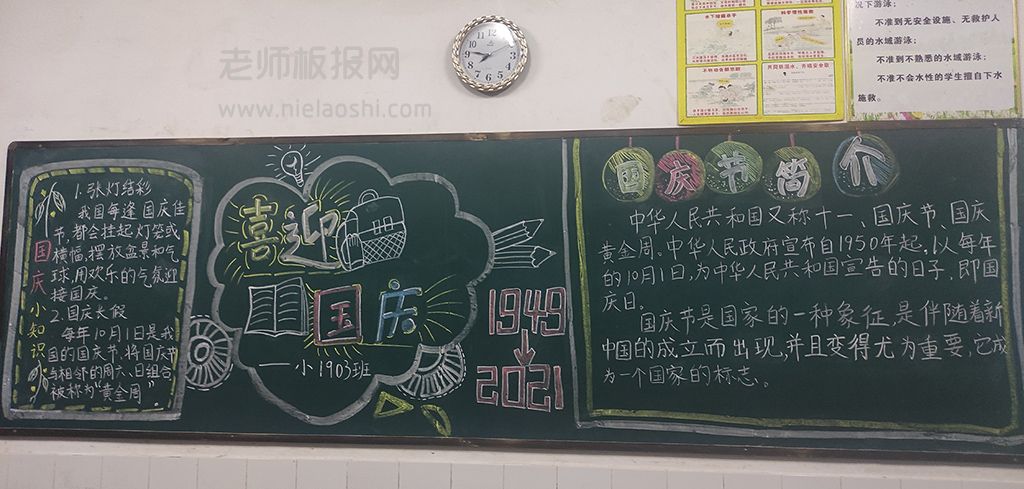 老师板报网
www.nielaoshi.cn
况下游泳；
不准到无安全设施、无救护人
员的水域游泳；
不准到不熟悉的水域游泳；
不准不会水性的学生擅自下水
施救。
国庆小知识
1.张灯结彩
我国每逢国庆佳
节,都会挂起灯笼或
横幅,摆放盆景和气
球,用欢乐的气氛迎
接国庆。
2.国庆长假
每年10月1日是我
国的国庆节,将国庆节
与相邻的周六、日组合
被称为“黄金周”
喜迎
国庆
——小1903班
1949
2021
国庆节简介
中华人民共和国又称十一、国庆节、国庆
黄金周。中华人民政府宣布自1950年起,以每年
的10月1日,为中华人民共和国宣告的日子,即国
庆日。
国庆节是国家的一种象征,是伴随着新
中国的成立而出现,并且变得尤为重要,它成
为一个国家的标志。